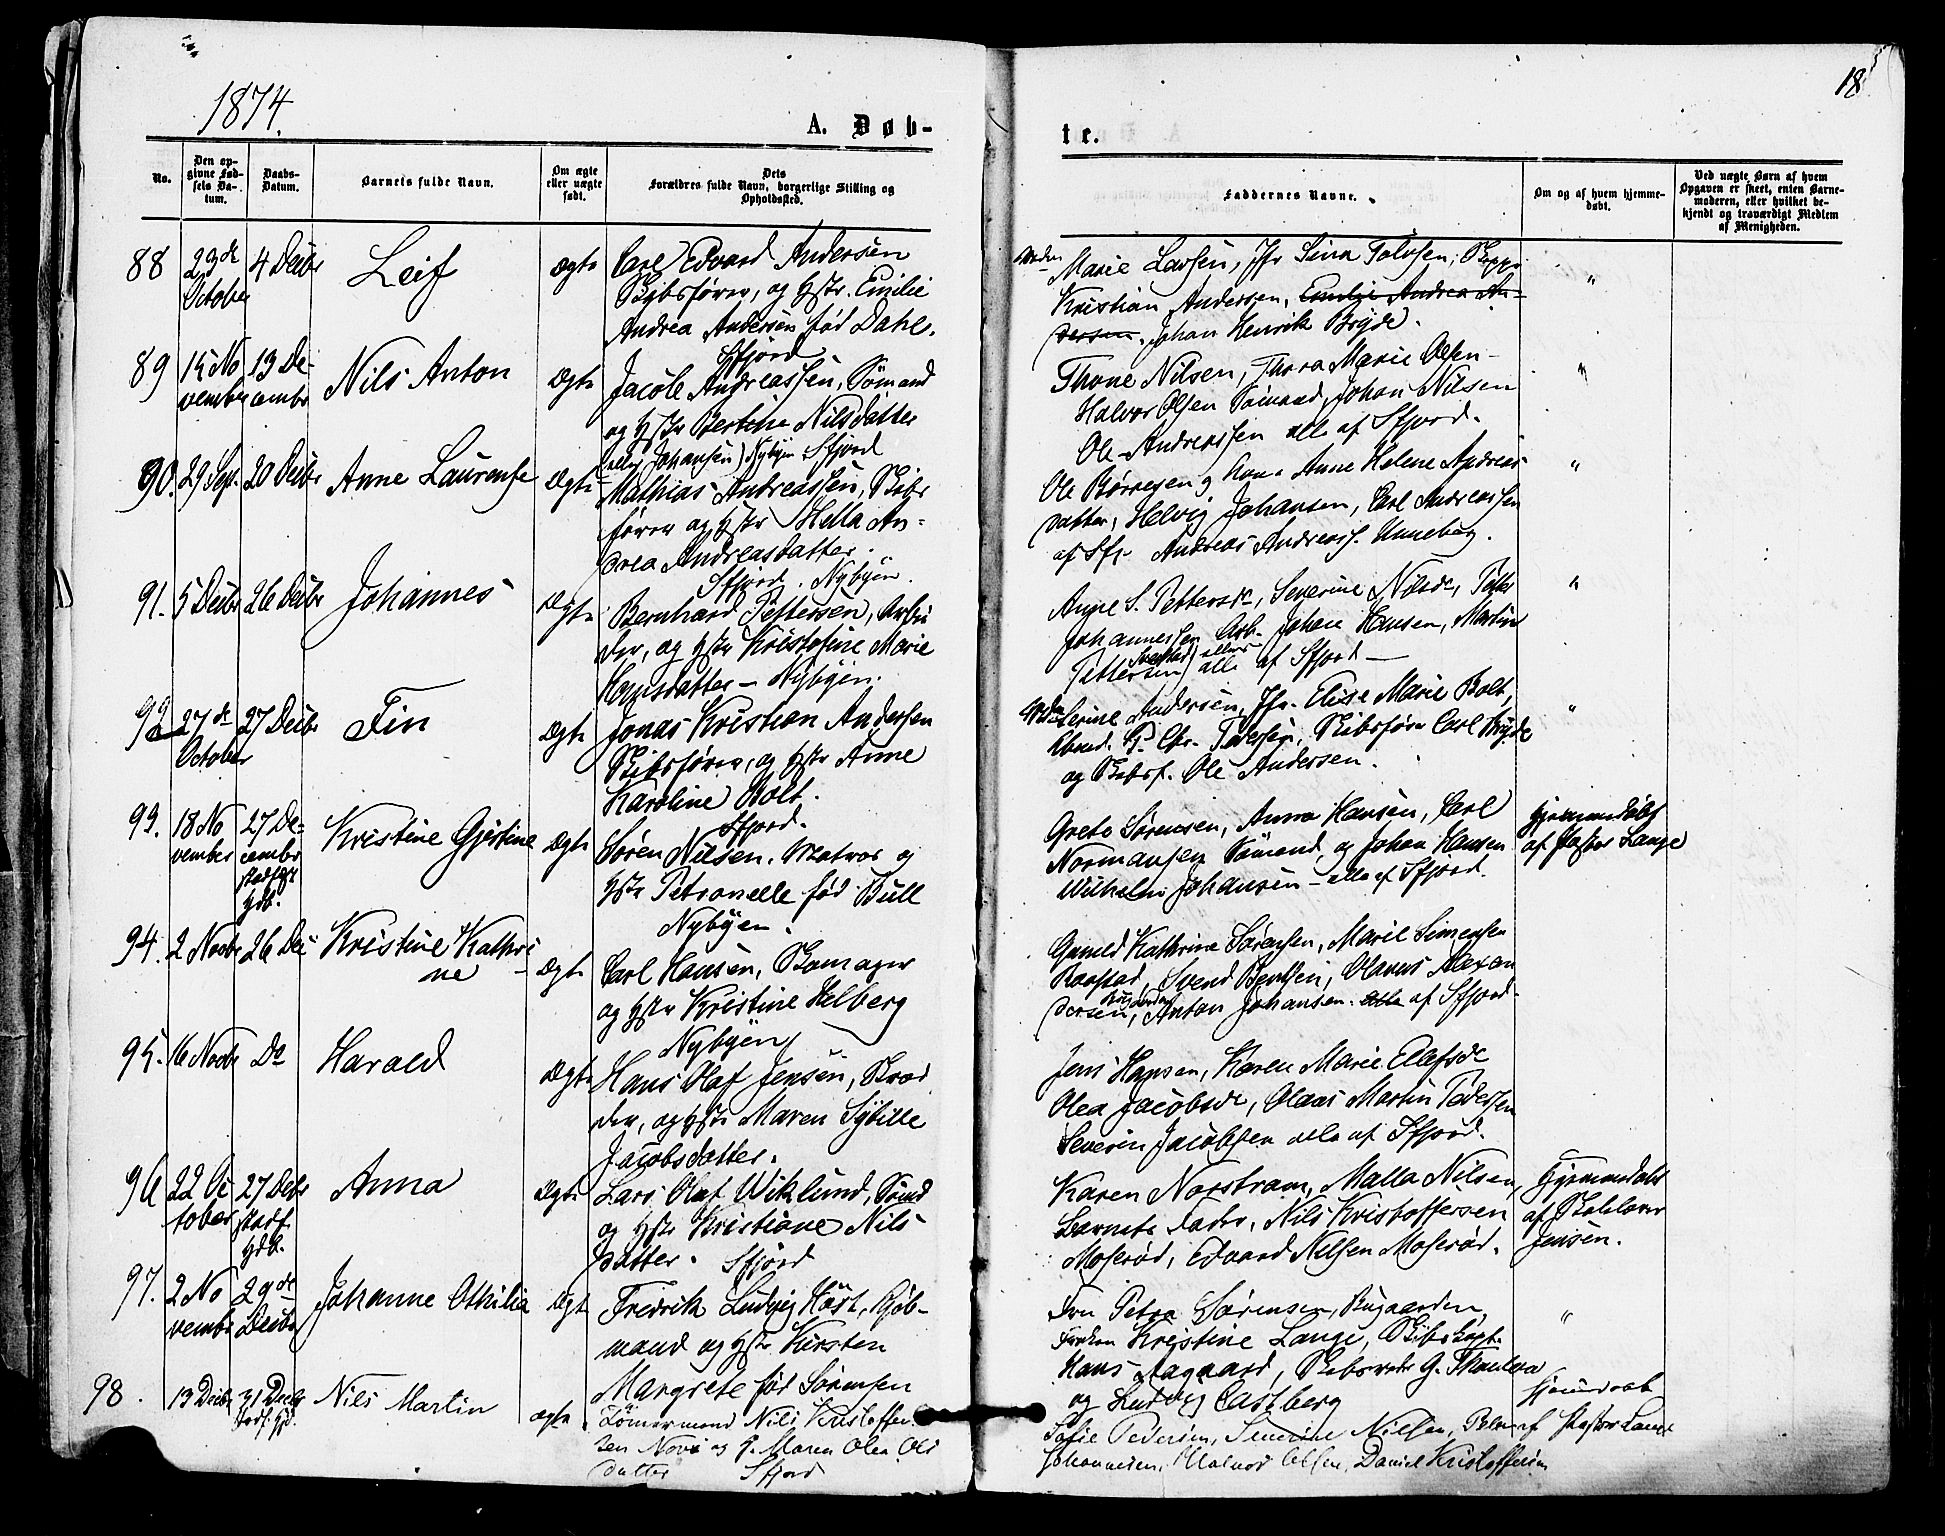 1874.
18
A. Døb-
te.
No.
Den op-
givne Fød-
sels Da-
tum.
Daabs-
Datum.
Barnets fulde Navn.
Om ægte
eller uægte
født.
Dets
Forældres fulde Navn, borgerlige Stilling og
Opholdssted.
Faddernes Navne.
Om og af hvem hjemme-
døbt.
Ved uægte Børn af hvem
Opgaven er skeet, enten Barne-
moderen, eller hvilket be-
kjendt og troværdigt Medlem
af Menigheden.
88
23de
October
4 Decbr
Leif
Ægte
Carl Edvard Andersen
Skibsfører, og Hstr. Emilie
Andrea Andersen fød Dahl.
Sfjord
Marie Larsen, Jfr Sina Tolvsen,
Kristian Andersen, Emilie Andrea An-
dersen. Johan Henrik Bryde.
"
89
15 No
vember
13 De-
cembr
Nils Anton
Ægte
Jacob Andreassen, Sömand
og Hstr Bertine Nilsdatter
Johansen) Nybyen Sfjord
Thone Nilsen, Thora Marie Olsen-
Halvor Olsen Sömand, Johan Nilsen
Ole Andreassen alle af Sfjord.
"
90.
29 Sept.
20 Decbr
Anne Laurense
Ægte
Mathias Andreassen, Skibs
fører og Hstr Hella An-
drea Andreasdatter.
Sfjord. Nybyen.
Ole Børresen og Kone Anne Helene Andreas
datter, Helvig Johansen, Carl Andreassen
af Sfj. Andreas Andreass. Unneberg.
"
91.
5 Decbr
26 Decbr
Johannes
Ægte
Bernhard Pettersen, Arbei
der, og Hstr Kristofine Marie
Hansdatter - Nybyen.
Anne S. Pettersdr, Severine Nilsdr, Petter
Johannessen Arb. Johan Hansen, Martin
Pettersen alle af Sfjord-
"
92
27de
October
27 Decbr
Fin
Ægte
Jonas Kristian Andersen
Skibsfører, og Hstr Anne
Karoline Bolt.
Sfjord.
Serine Andersen, Jfr. Elise Marie Bolt,
Skibsfører Carl Bryde
og Skibsf. Ole Andersen.
"
93.
18 No
vember
27 De-
cembr
stadf
Hdb.
Kristine Gjestine
Ægte
Søren Nilsen. Matros og
Hstr Petronelle fød Bull
Nybyen.
Grete Sørensen, Anna Hansen, Carl
Normansen Sømand, og Johan Hansen
Wilhelm Johansen - alle af Sfjord.
Hjemmedøbt
af Pastor Lange
94.
2 Novbr
26 Dec
Kristine Kathri
ne
Ægte
Carl Hansen, Skomager
og Hstr Kristine Helberg
Nybyen
Kathrine Sørensen, Marie Simensen
Raastad, Svend Bentsen, Olavus Alexan
dersen, Anton Johansen. Alle af Sfjord.
95.
16 Novbr
Do
Harald
Ægte
Hans Olaf Jensen, Skræd
der, og Hstr Maren Sybille
Jacobsdatter.
Jens Hansen, Karen Marie Elefsdr
Olea Jacobsdr, Olaus Martin Pedersen
Severin Jacobsen alle af Sfjord.
96
22 Oc
tober
27 Decbr
stadf.
Hdb.
Anna
Ægte
Lars Olaf Wiklund, Sømd
og Hstr Kristiane Nils
datter. Sfjord
Karen Norstrøm, Malla Nilsen,
Barnets Fader, Nils Kristoffersen
Moserød, Edvard Nilsen Moserød.
Hjemmedøbt
af Skolelærer
Jensen.
97.
2 No
vembr
29de
Decbr
Johanne Othilia
Ægte
Fredrik Ludvig Høst, Kjöb-
mand og Hstr Kirsten
Margrete fød Sørensen
Fru Petra Sørensen, Bugaarden,
Frøken Kristine Lange, Skibskapt.
Hans Aagaard, Skibsreder G. Thaulow
og Ludvig Castberg
"
98.
13 Decbr
31 Decbr
stadf. Hjd.
Nils Martin
ægte
Tömermand Nils Kristoffer-
sen Novi og H. Maren Olea Ols
datter Sfjord
Sofie Pedersen, Severine Nielsen,
Johannesen, Halvor Olsen, Daniel Kristoffersen
hjemmedøbt
af Pastor Lange